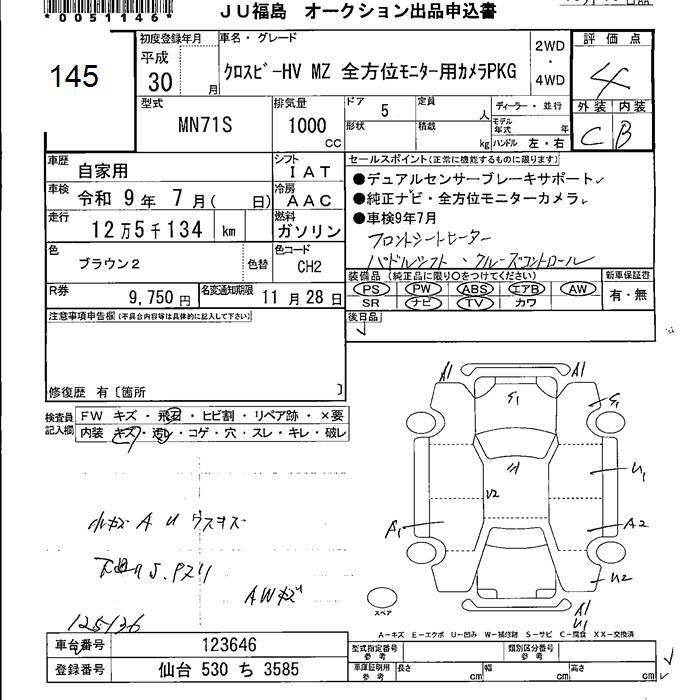 *0051146*
JU福島 オークション出品申込書
145
初度登録年月
平成
30 月
車名・グレード
クロスビーHV MZ 全方位モニター用カメラPKG
2WD
・
4WD
評価点
4
外装 内装
C B
型式
MN71S
排気量
1000
cc
ドア 5
定員 人
形状
積載 kg
ディーラー・並行
モデル年式 年
ハンドル 左・右
車歴
自家用
シフト
IAT
車検
令和 9年 7月( 日)
冷房
AAC
走行
12万5千134 km
燃料
ガソリン
色
ブラウン2
色替
色コード
CH2
R券
9,750円
名変通知期限
11月28日
セールスポイント(正常に機能するものに限ります)
●デュアルセンサーブレーキサポート
●純正ナビ・全方位モニターカメラ
●車検9年7月
フロントシートヒーター
パドルシフト、クルーズコントロール
装備品(純正品に限り○をつけてください)
PS PW ABS エアB AW
SR ナビ TV カワ
新車保証書
有・無
後日品
注意事項申告欄(不具合内容等は具体的に記入して下さい)
修復歴 有〔箇所 〕
検査員記入欄
FW キズ・飛石・ヒビ割・リペア跡・×要
内装 キズ・汚レ・コゲ・穴・スレ・キレ・破レ
小キズ A U ウスキズ
下廻りS.Pスリ
AWキズ
125136
A1
A1
E1
E1
U1
U2
A1
A2
U2
A1
U1
スペア
A－キズ E－エクボ U－凹み W－補修跡 S－サビ C－腐食 XX－交換済
車台番号
123646
登録番号
仙台 530 ち 3585
型式指定番号
参考
類別区分番号
参考
車庫証明用
参考
長さ cm
幅 cm
高さ cm